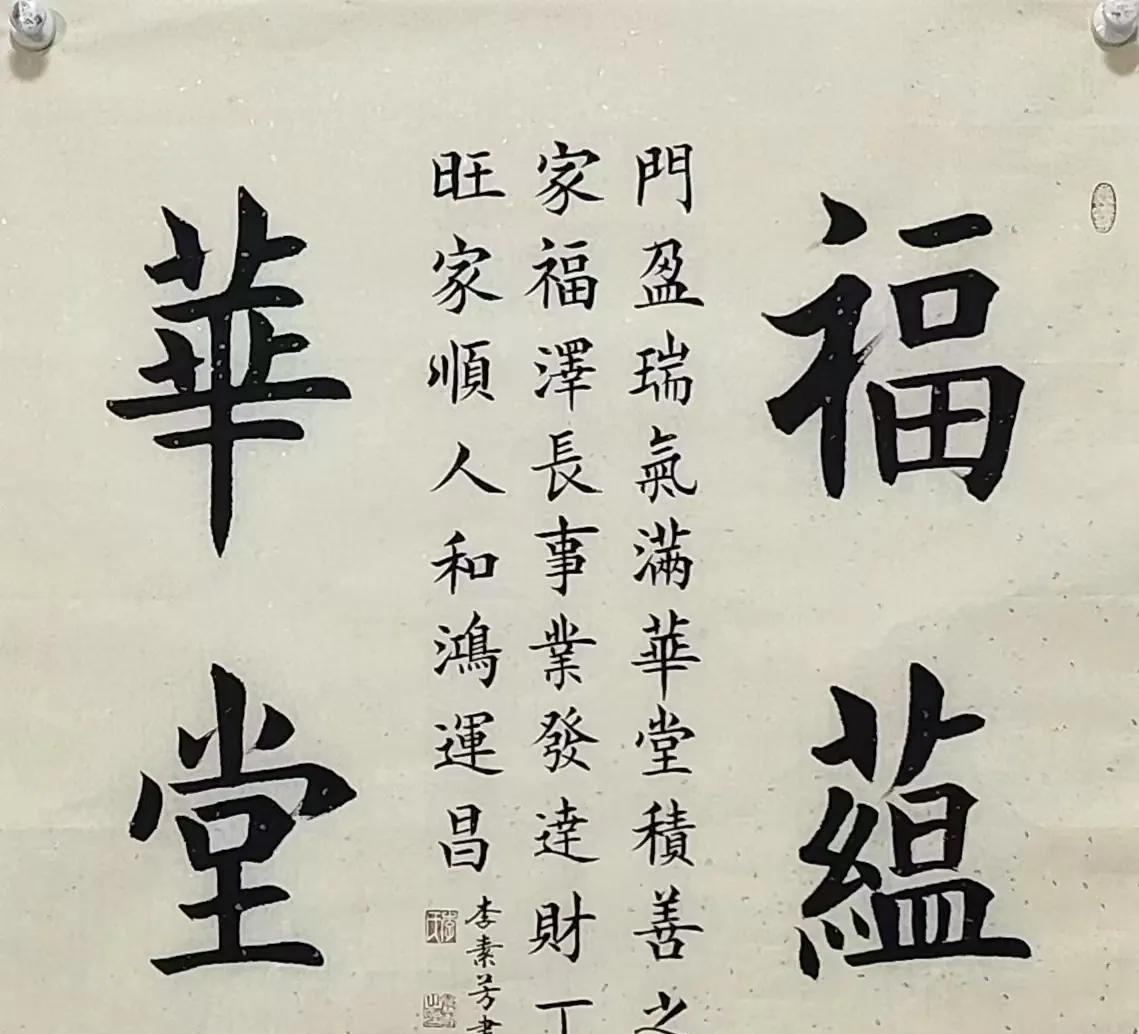 福蘊
門盈瑞氣滿華堂積善之
家福澤長事業發達財丁
旺家順人和鴻運昌
李素芳書
華堂